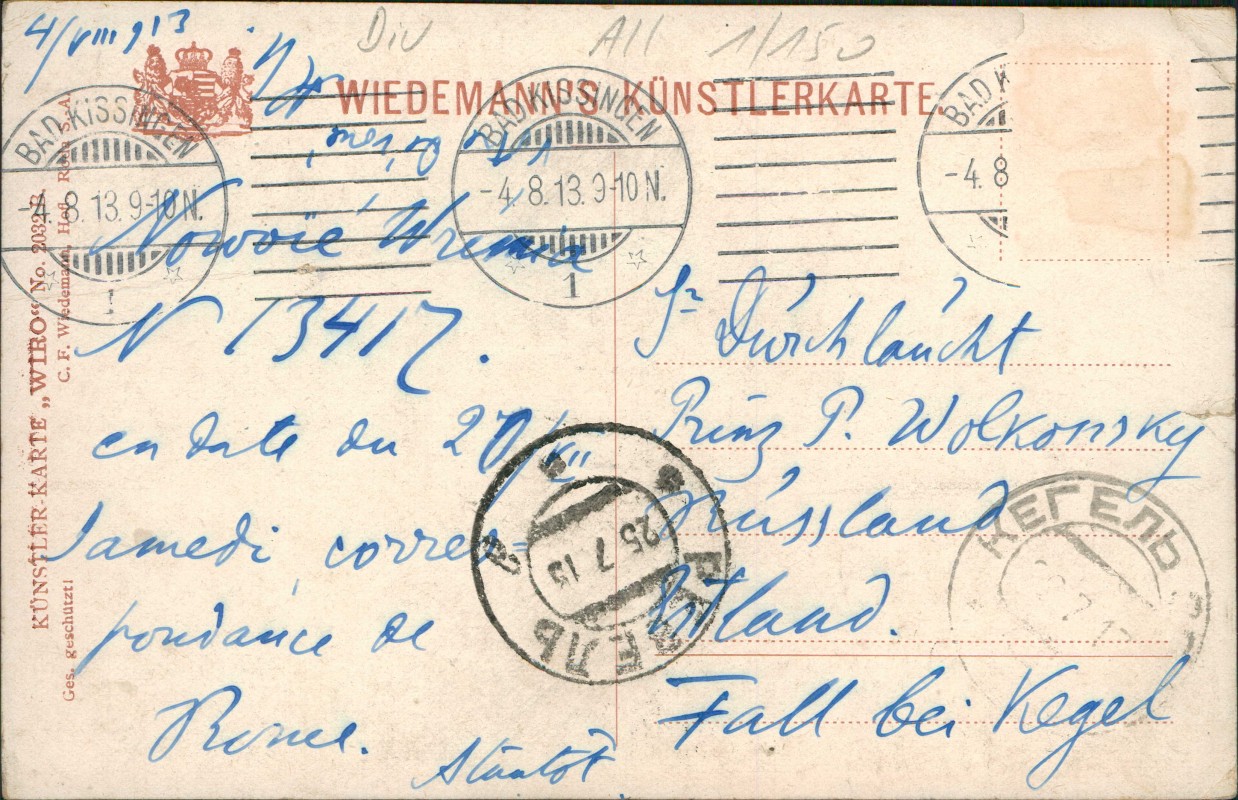 4/VIII 913
Div All 1/150
WIEDEMANN'S KÜNSTLERKARTE
BAD KISSINGEN
-4.8.13.9-10 N.
1
BAD KISSINGEN
-4.8.13.9-10 N.
1
BAD K
-4.8
Nowoïé Wrémia
N 13417.
en date du
Samedi, corres=
pondance de
Rome.
Sr Dürchlaücht
Prinz P. Wolkonsky
Rüssland
Estland.
Fall bei Kegel
РЕВЕЛЬ
25.7.13
а
КЕГЕЛЬ
KÜNSTLER-KARTE „WIRO“ No. 2032
C. F. Wiedemann, Hofl.
Ges. geschützt!